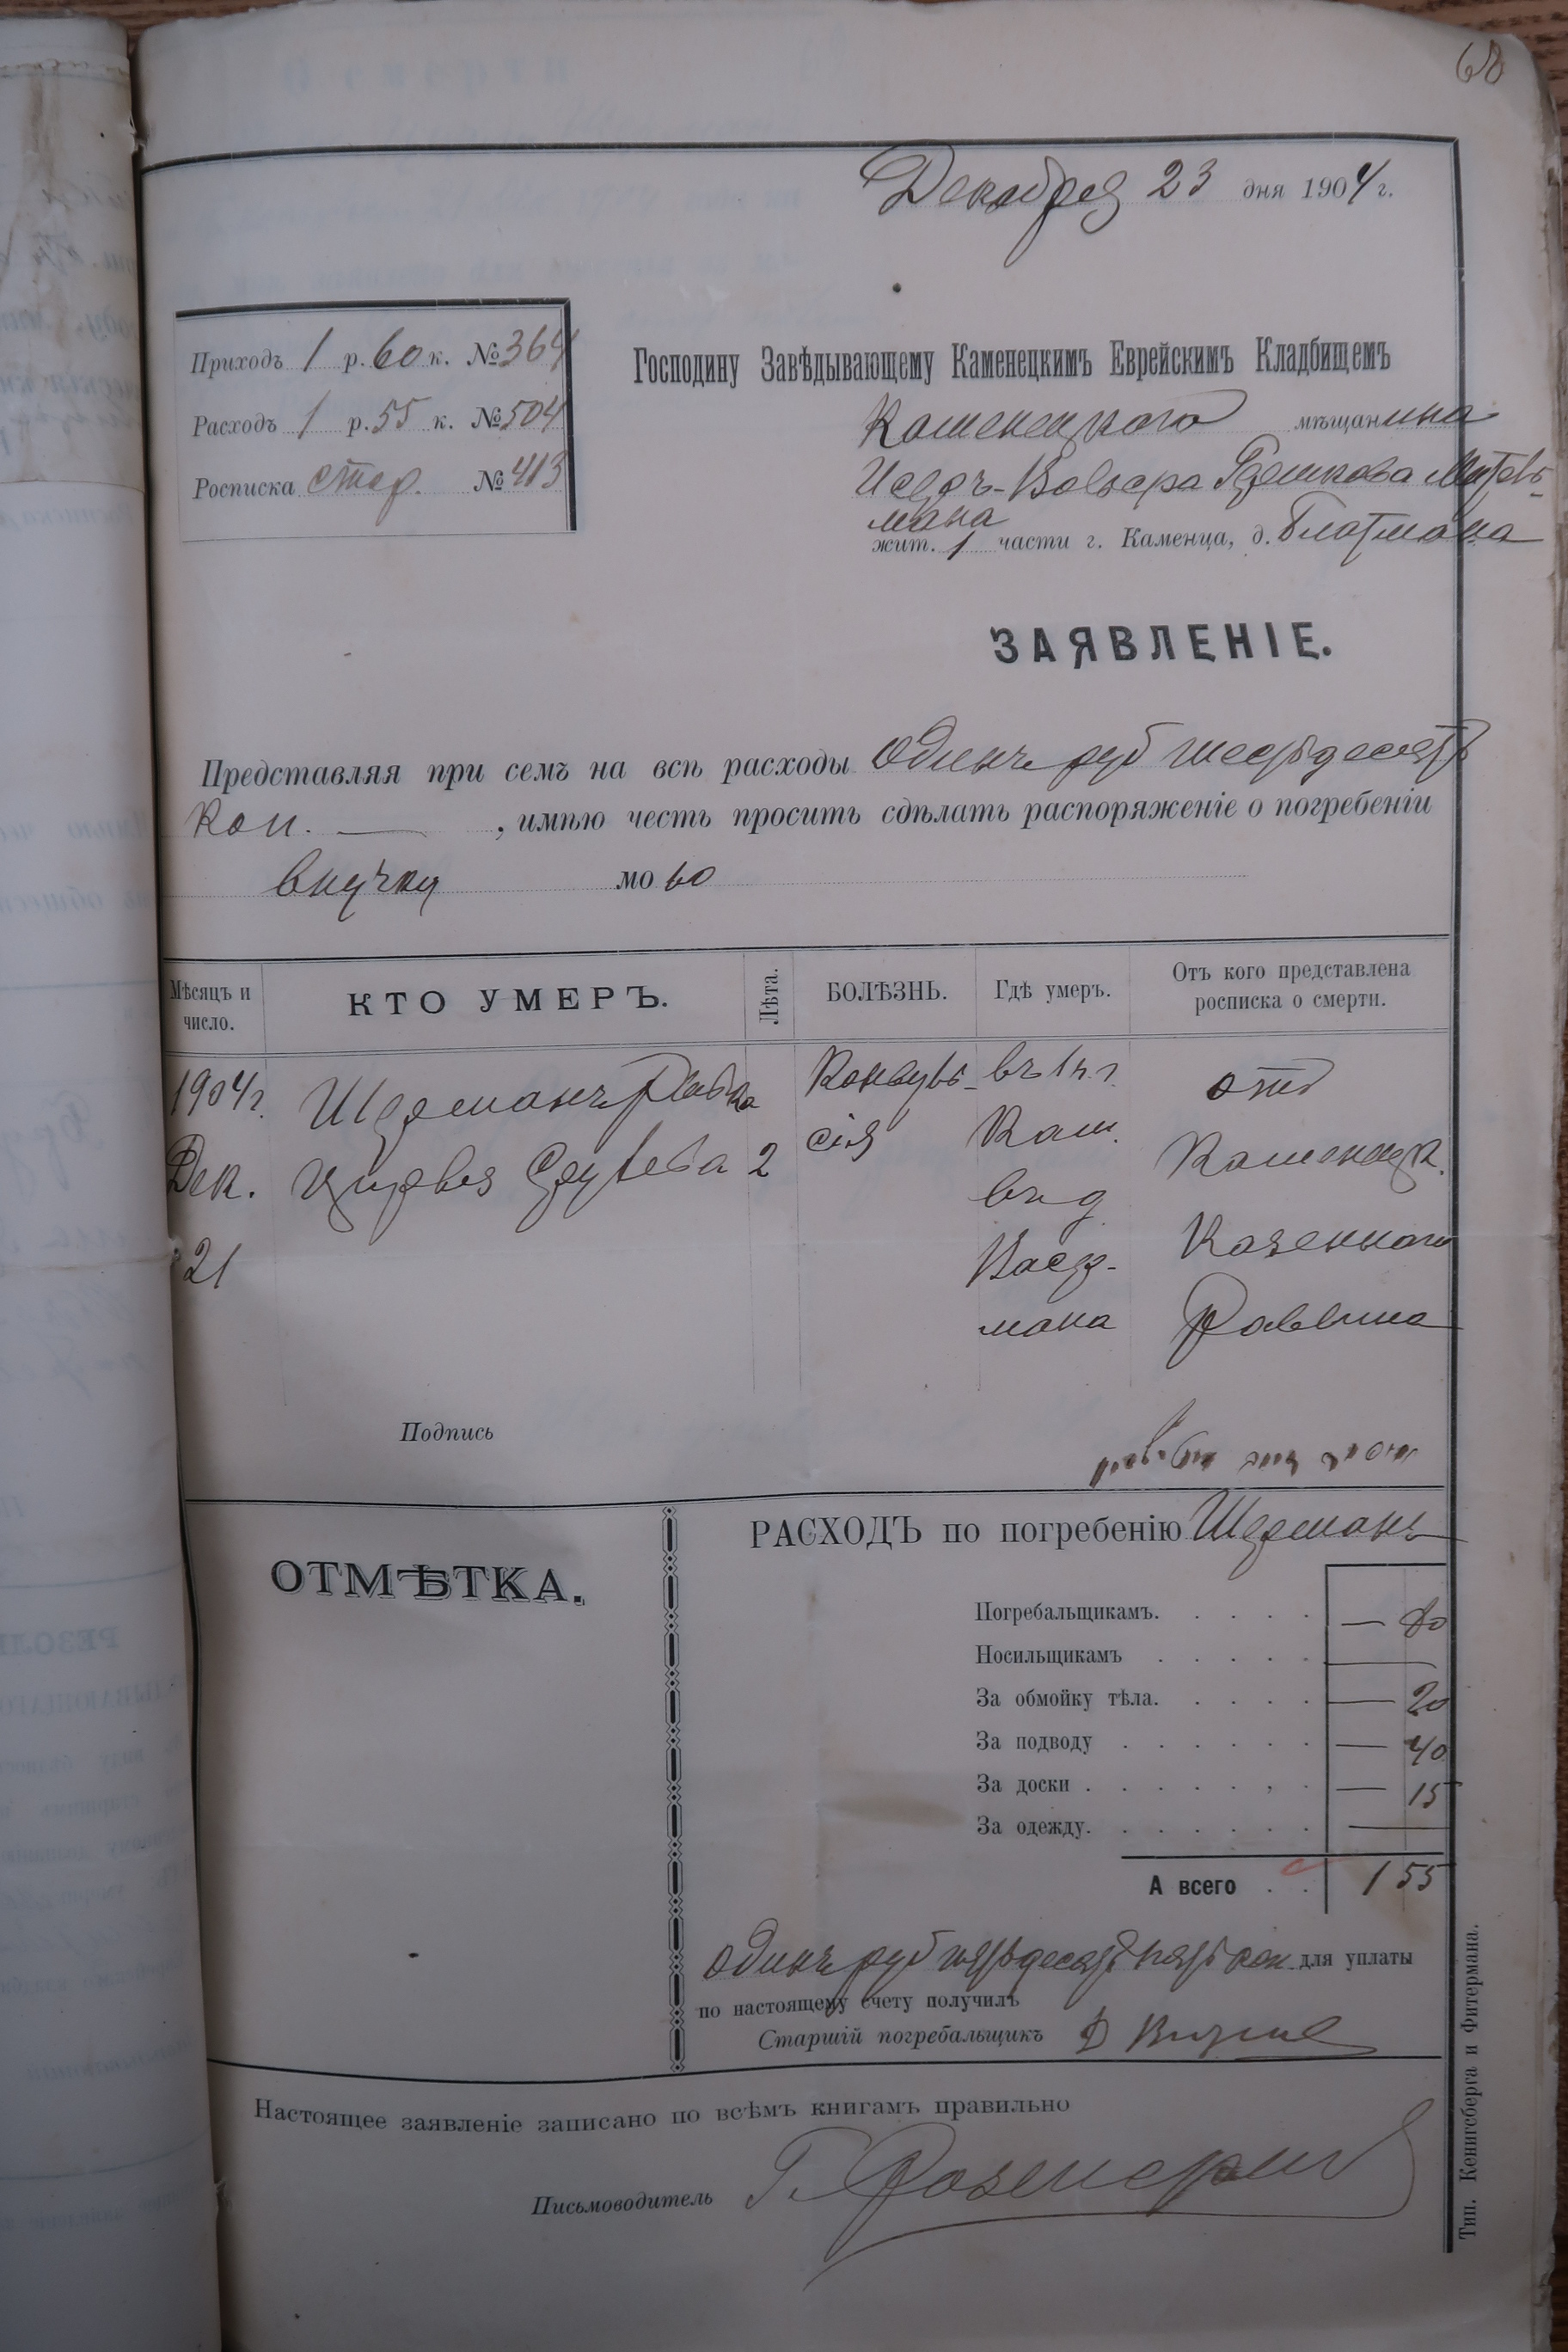 68
Декабря 23 дня 1904 г.
Приходъ 1 р. 60 к. № 364
Расходъ 1 р. 55 к. № 504
Росписка стар. № 413
Господину Завѣдывающему Каменецкимъ Еврейскимъ Кладбищемъ
Каменецкого мѣщанина
мана
жит. 1 части г. Каменца, д.
ЗАЯВЛЕНІЕ.
Представляя при семъ на всѣ расходы Одинъ руб шестьдесятъ
Коп. — , имѣю честь просить сдѣлать распоряженіе о погребеніи
внучку мою
Мѣсяцъ и число.
КТО УМЕРЪ.
Лѣта.
БОЛѢЗНЬ.
Гдѣ умеръ.
Отъ кого представлена росписка о смерти.
1904 г. Конвуль- въ 1 ч. г. отъ
Дек. 2 сія Кам. Каменецк.
21 въ д. Казенного
мана Раввина
Подпись
ОТМѢТКА.
РАСХОДЪ по погребенію
Погребальщикамъ. — 80
Носильщикамъ —
За обмойку тѣла. — 20
За подводу — 40
За доски — 15
За одежду. —
А всего 1 55
Одинъ руб пятьдесятъ пять коп. для уплаты
по настоящему счету получилъ
Старшій погребальщикъ
Настоящее заявленіе записано по всѣмъ книгамъ правильно
Письмоводитель
Тип. Кенигсберга и Фитермана.